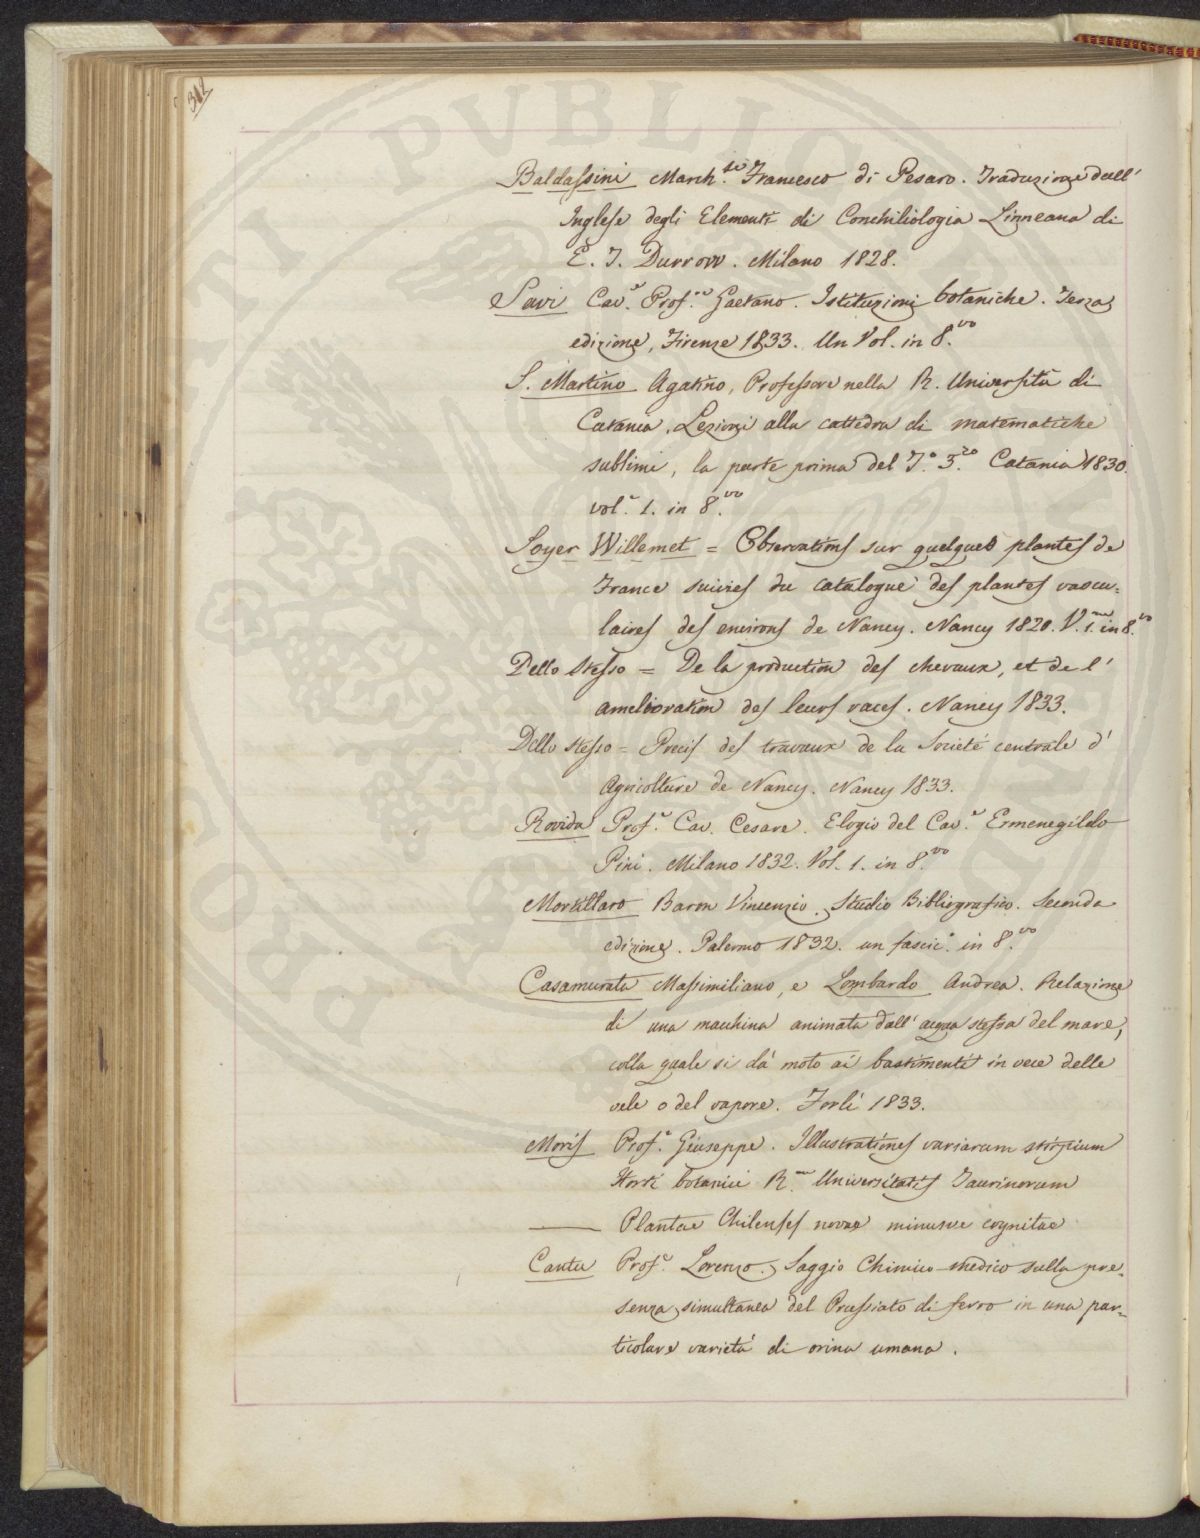 312
Baldassini March.se Francesco di Pesaro. Traduzione dall'
Inglese degli Elementi di Conchiliologia Linneana di
E. I. Burrow. Milano 1828.
Savi Cav.e Prof.re Gaetano. Istituzioni botaniche. Terza
edizione, Firenze 1833. Un Vol. in 8.vo
S. Martino Agatino, Professore nella R. Università di
Catania. Lezioni alla cattedra di matematiche
sublimi, la parte prima del T.o 3.zo Catania 1830.
vol.e 1. in 8.vo
Soyer Willemet = Observations sur quelques plantes de
France suivies du catalogue des plantes vascu=
laires des environs de Nancy. Nancy 1820. V. 1.me in 8.vo
Dello stesso = De la production des chevaux, et de l'
amelioration des leurs races. Nancy 1833.
Dello stesso = Precis des travaux de la Societé centrale d'
Agricolture de Nancy. Nancy 1833.
Rovida Prof.e Cav. Cesare. Elogio del Cav.e Ermenegildo
Pini. Milano 1832. Vol. 1. in 8.vo
Mortillaro Baron Vincenzio. Studio Bibliografico. Seconda
edizione. Palermo 1832. un fascic.o in 8.vo
Casamurata Massimiliano, e Lombardo Andrea. Relazione
di una macchina animata dall'acqua stessa del mare,
colla quale si dà moto ai bastimenti in vece delle
vele o del vapore. Forlì 1833.
Moris Prof.e Giuseppe. Illustrationes variarum stirpium
Horti botanici R.ae Universitatis Taurinorum
——— Plantae Chilenses novae minusve cognitae
Cantu Prof.e Lorenzo. Saggio Chimico-medico sulla pre=
senza simultanea del Prussiato di ferro in una par=
ticolare varietà di orina umana.